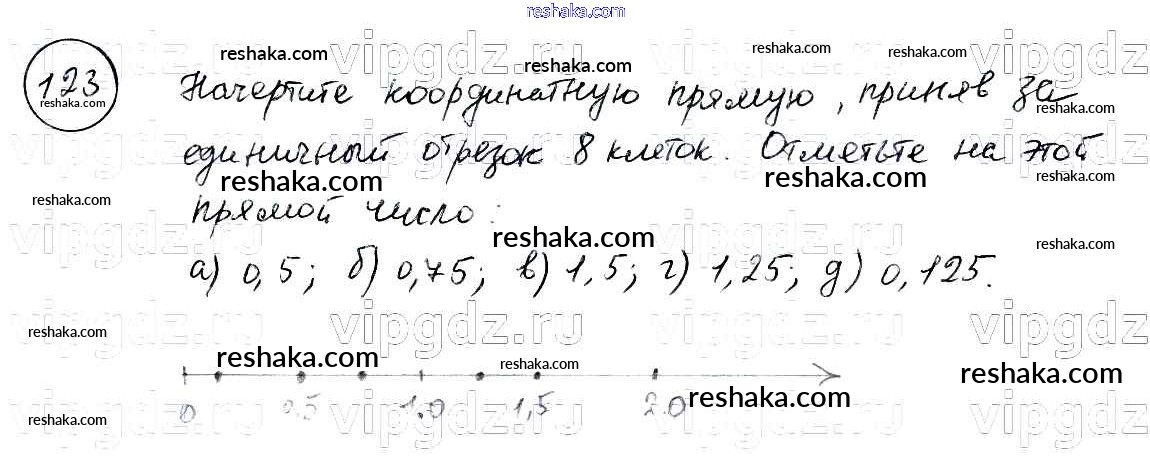 reshaka.com
vipgdz.ru vipgdz.ru vipgdz.ru vipgdz
reshaka.com reshaka.com reshaka.com
reshaka.com
123 Начертите координатную прямую, приняв за
reshaka.com reshaka.com
единичный отрезок 8 клеток. Отметьте на этой
reshaka.com reshaka.com reshaka.com
reshaka.com
прямой число:
vipgdz.ru vipgdz.ru vipgdz.ru vipgdz
reshaka.com reshaka.com
а) 0,5; б) 0,75; в) 1,5; г) 1,25; д) 0,125.
vipgdz.ru vipgdz.ru vipgdz.ru vipgdz
reshaka.com reshaka.com
reshaka.com reshaka.com reshaka.com
reshaka.com
0 0,5 1,0 1,5 2.0
vipgdz.ru vipgdz.ru vipgdz.ru vipgdz
reshaka.com reshaka.com